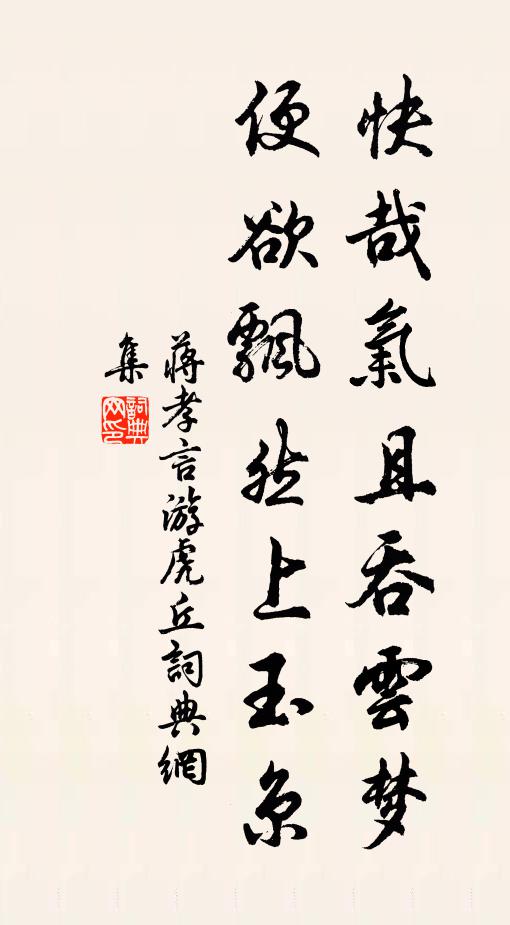 快哉氣且吞雲梦
便欲飄然上玉京
蔣孝言游虎丘詞典網
集
詞典網印